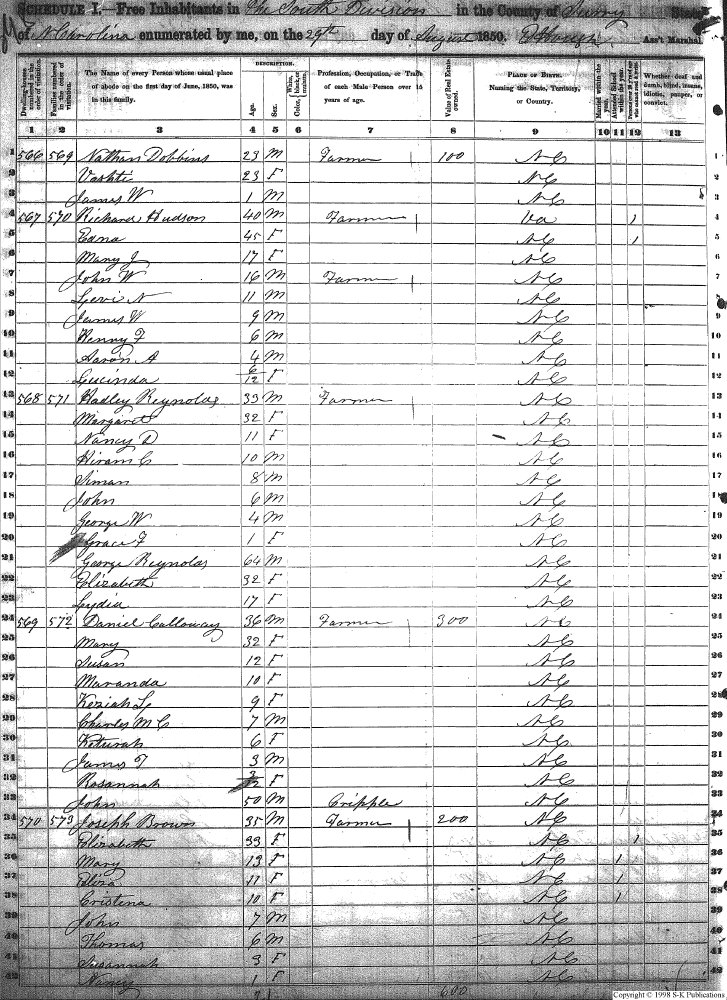 SCHEDULE I.—Free Inhabitants in The South Division in the County of Surry State
of N. Carolina enumerated by me, on the 29th day of August 1850. Ass't Marshal
Dwelling-houses numbered in the order of visitation.
Families numbered in the order of visitation.
The Name of every Person whose usual place of abode on the first day of June, 1850, was in this family.
DESCRIPTION.
Age.
Sex.
Color, White, black, or mulatto.
Profession, Occupation, or Trade of each Male Person over 15 years of age.
Value of Real Estate owned.
PLACE OF BIRTH. Naming the State, Territory, or Country.
Married within the year.
Attended School within the year.
Whether deaf and dumb, blind, insane, idiotic, pauper, or convict.
1 2 3 4 5 6 7 8 9 10 11 12 13
1 566 569 Nathan Dobbins 23 M Farmer 100 NC 1
2 Vashti 23 F NC 2
3 James W 1 M NC 3
4 567 570 Richard Hudson 40 M Farmer Va 1 4
5 Edna 45 F NC 1 5
6 Mary J 17 F NC 6
7 John W 16 M Farmer NC 7
8 Levi N 11 M NC 8
9 James W 9 M NC 9
10 Henny F 6 M NC 10
11 Aaron A 4 M NC 11
12 Lucinda 6/12 F NC 12
13 568 571 Hadley Reynolds 33 M Farmer NC 13
14 Margaret 32 F NC 14
15 Nancy D 11 F NC 15
16 Hiram C 10 M NC 16
17 Siman 8 M NC 17
18 John 6 M NC 18
19 George W 4 M NC 19
20 Grace F 1 F NC 20
21 George Reynolds 64 M NC 21
22 Elizabeth 32 F NC 22
23 Lydia 17 F NC 23
24 569 572 Daniel Calloway 36 M Farmer 300 NC 24
25 Mary 32 F NC 25
26 Susan 12 F NC 26
27 Maranda 10 F NC 27
28 Keziah L 9 F NC 28
29 Charles M C 7 M NC 29
30 Keturah 6 F NC 30
31 James T 3 M NC 31
32 Rosannah F NC 32
33 John 50 M Cripple NC 33
34 570 573 Joseph Brown 35 M Farmer 200 NC 34
35 Elizabeth 33 F NC 1 35
36 Mary 13 F NC 1 36
37 Eliza 11 F NC 1 37
38 Cristena 10 F NC 1 38
39 John 7 M NC 39
40 Thomas 6 M NC 40
41 Susannah 3 F NC 41
42 Nancy 1 F NC 42
600
Copyright © 1998 S-K Publications